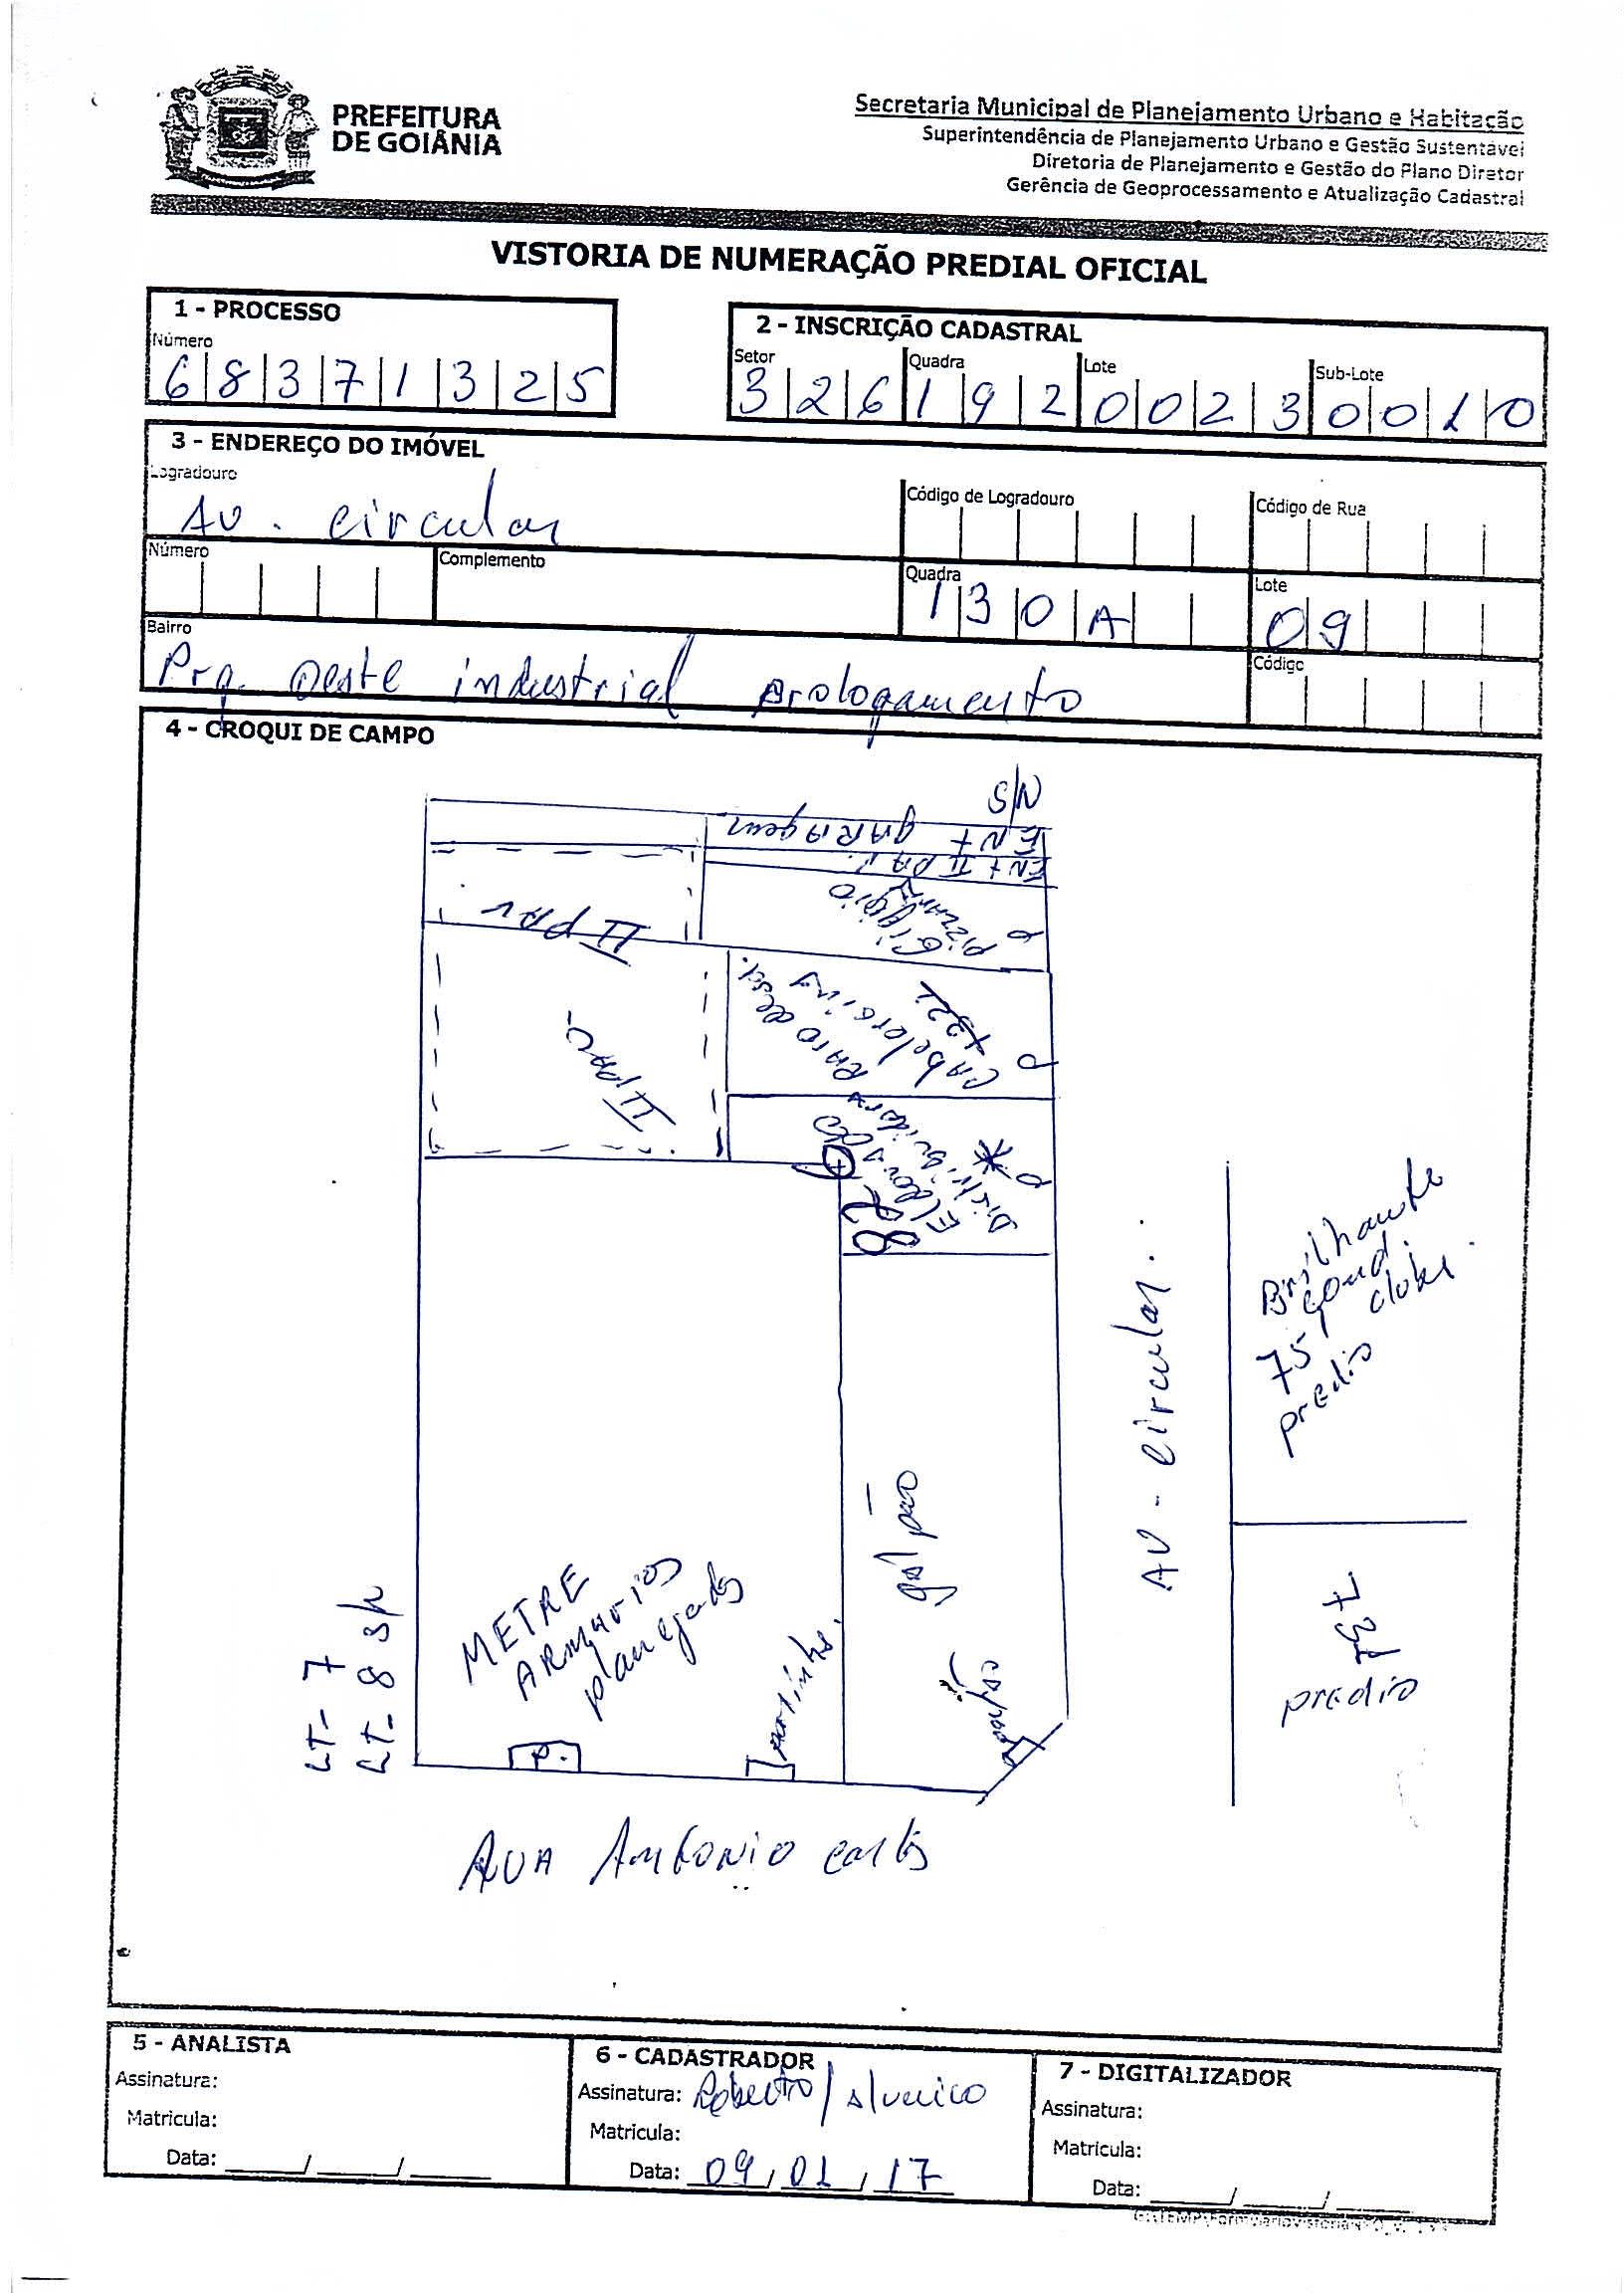 PREFEITURA
DE GOIÂNIA
Secretaria Municipal de Planejamento Urbano e Habitação
Superintendência de Planejamento Urbano e Gestão Sustentável
Diretoria de Planejamento e Gestão do Plano Diretor
Gerência de Geoprocessamento e Atualização Cadastral
VISTORIA DE NUMERAÇÃO PREDIAL OFICIAL
1 - PROCESSO
Número
6 8 3 7 1 3 2 5
2 - INSCRIÇÃO CADASTRAL
Setor Quadra Lote Sub-Lote
3 2 6 1 9 2 0 0 2 3 0 0 1 0
3 - ENDEREÇO DO IMÓVEL
Logradouro
AV. circular
Código de Logradouro
Código de Rua
Número
Complemento
Quadra
130A
Lote
09
Bairro
Prq. Oeste industrial prologamento
Código
4 - CROQUI DE CAMPO
S/N
ENT GARAGEM
ENT II PAV.
PIZZARIA
Giggio
II PAV
II PAV.
Cabeloreiny
Distribuidora
Eldorado
28
AV - circular.
Brilhante
cond. clube.
75
predio
galpão
731
predio
METRE
ARMARIOS
planejados
P.
LT- 7
LT- 8 S/N
RUA Antonio carlos
5 - ANALISTA
Assinatura:
Matricula:
Data: ____/____/____
6 - CADASTRADOR
Assinatura: Roberto/
Matricula:
Data: 09/01/17
7 - DIGITALIZADOR
Assinatura:
Matricula:
Data: ____/____/____